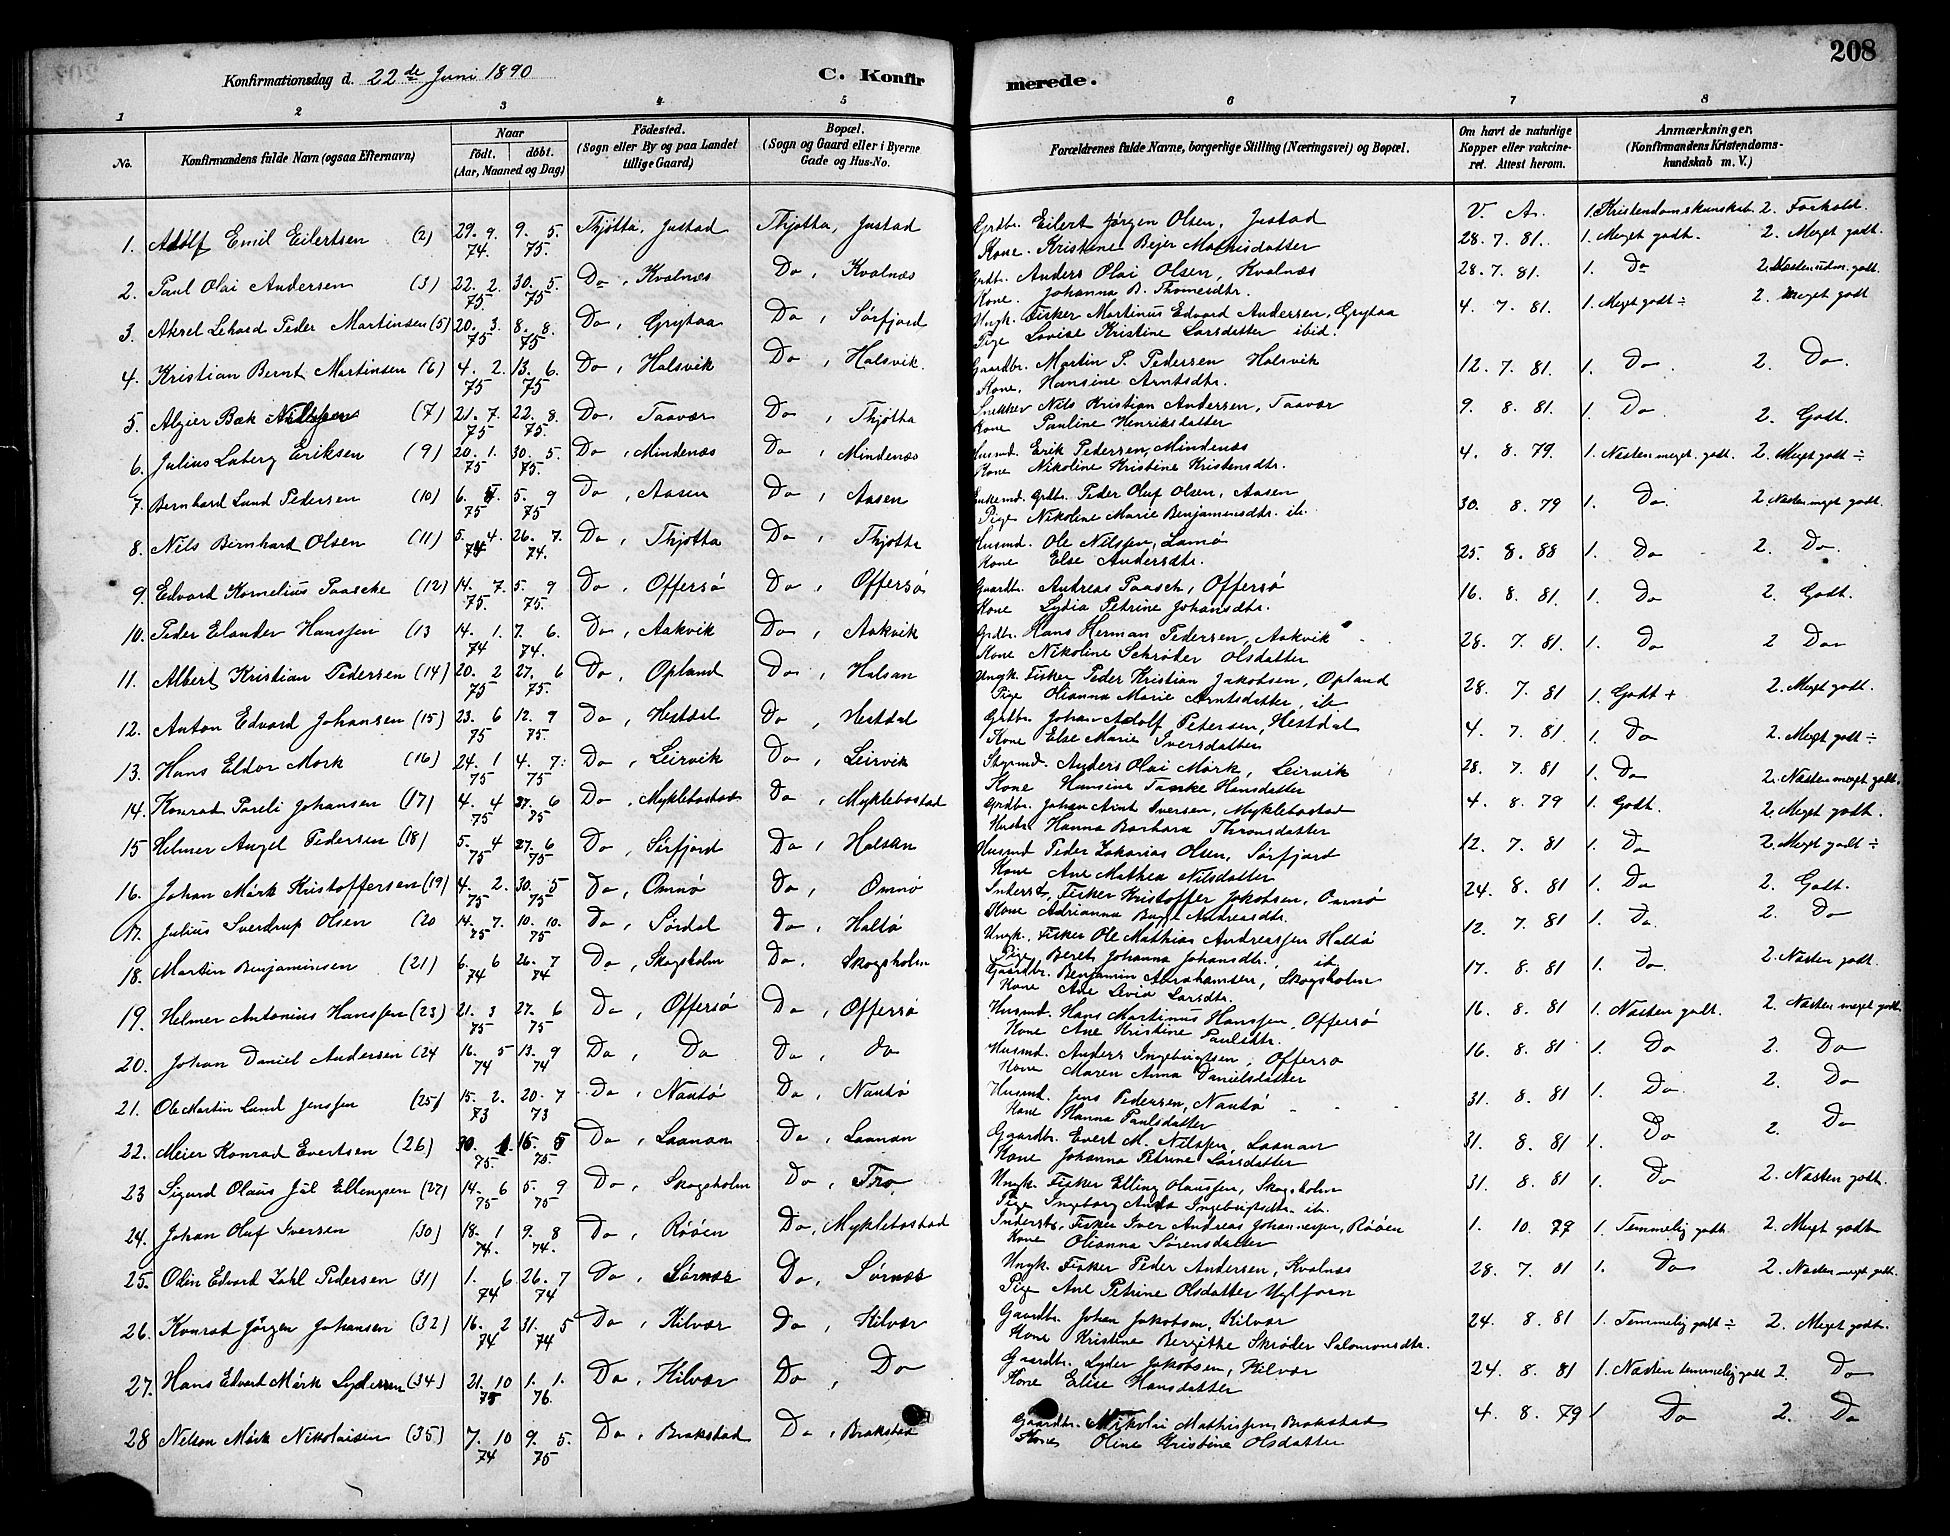 208
Konfirmationsdag d. 22de Juni 1890
C. Konfirmerede.
1 2 3 4 5 6 7 8
No. Konfirmandens fulde Navn (ogsaa Efternavn) Naar født. døbt. (Aar, Maaned og Dag) Födested. (Sogn eller By og paa Landet tillige Gaard) Bopæl. (Sogn og Gaard eller i Byerne Gade og Hus-No. Forældrenes fulde Navne, borgerlige Stilling (Næringsvei) og Bopæl. Om havt de naturlige Kopper eller vakcineret. Attest herom. Anmærkninger. (Konfirmandens Kristendomskundskab m. V.)
V. A. 1. Kristendomskunskab 2. Forhold.
1. Adolf Emil Eilertsen (2) 29. 9. 74. 9. 5. 75. Thjøtta, Justad Thjøtta, Justad Grdbr. Eilert Jørgen Olsen, Justad
Kone. Kristine Bejer Mathisdatter 28. 7. 81. 1. Meget godt. 2. Meget godt.
2. Paul Olai Andersen (3) 22. 2. 75 30. 5. 75 Do, Kvalnæs Do, Kvalnæs Grdbr. Anders Olai Olsen, Kvalnæs 28. 7. 81. 1. Do 2. Næsten udm. godt.
Kone. Johanna B. Thomesdtr.
3. Aksel Lehard Peder Martinsen (5) 20. 3. 75 8. 8. 75. Do, Grytaa Do, Sørfjord Ungk. Fisker Martinus Edvard Andersen, Grytaa 4. 7. 81. 1. Meget godt ÷ 2. Meget godt
Pige Lovise Kristine Larsdatter ibid.
4. Kristian Bernt Martinsen (6) 4. 2. 75 13. 6. 75. Do, Halsvik Do, Halsvik. Gaardbr. Martin P. Pedersen Halsvik 12. 7. 81. 1. Do. 2. Do.
Kone. Hansine Arntsdtr.
5. Algier Bæk Nilsen (7) 21. 7. 75 22. 8. 75. Do, Taavær Do, Thjøtta Snekker Nils Kristian Andersen, Taavær 9. 8. 81. 1. Do. 2. Godt.
Kone Pauline Henriksdatter
6. Julius Laberg Eriksen (9) 20. 1. 75 30. 5. 75. Do, Mindenæs Do, Mindenæs Husmd. Erik Pedersen, Mindenæs 4. 8. 79. 1. Næsten meget godt. 2. Meget godt ÷
Kone Nikoline Kristine Kristensdtr.
7. Bernhard Lund Pedersen (10) 6. 5. 75 5. 9 75 Do, Aasen Do, Aasen Enkemd. Grdbr. Peder Oluf Olsen, Aasen
Pige Nikoline Marie Benjaminsdtr. ib. 30. 8. 79 1. Do 2. Næsten meget godt.
8. Nils Bernhard Olsen (11) 5. 4. 74 26. 7. 74. Do, Thjøtta Do, Thjøtta Husmd. Ole Nilssen, Lamø
Kone Else Andersdtr. 25. 8. 88 1. Do 2. Do.
9. Edvard Kornelius Paasche (12) 14. 7 75. 5. 9 75. Do, Offersø Do, Offersø Gaardbr. Andreas Paasch, Offersø 16. 8. 81. 1. Do 2. Godt.
Kone Lydia Petrine Johansdtr.
10. Peder Elander Hanssen (13 14. 1. 74 7. 6. 74. Do, Aakvik Do, Aakvik Grdbr. Hans Herman Pedersen, Aakvik 28. 7. 81. 1. Do 2 Do
Kone Nikoline Schrøder Olsdatter
11. Albert Kristian Pedersen (14) 20. 2 75 27. 6 75. Do, Opland Do, Halsan Ungk. Fisker Peder Kristian Jakobsen, Opland 28. 7. 81 1. Godt + 2. Meget godt.
Pige Olianna Marie Arntsdatter, ib
12. Anton Edvard Johansen (15) 23. 6 75 12. 9 75. Do, Hestdal Do, Hestdal Grdbr. Johan Adolf Petersen, Hestdal 4. 7. 81. 1. Do 2. Meget godt ÷
Kone Else Marie Iversdatter
13. Hans Eldor Mørk (16) 24. 1 75 4. 7. 75 Do, Leirvik Do, Leirvik Styrmd. Anders Olai Mørk, Leirvik 28. 7. 81 1. Do 2. Næsten meget godt.
Kone Hansine Hansdatter
14. Konrad Pareli Johansen (17) 4. 4 75 27. 6 75 Do, Myklebostad Do, Myklebostad Grdbr. Johan Arnt Iversen, Myklebostad 4. 8. 79 1. Godt. 2. Meget godt.
Hustr. Hanna Barbara Thronsdatter
15 Helmer Angel Pedersen (18) 5. 4 75 27. 6 75 Do, Sørfjord Do, Halsan Husmd Peder Zakarias Olsen, Sørfjord 12. 7. 81 1. Do 2. Meget godt ÷
Kone Ane Mathea Nilsdatter
16. Johan Mørk Kristoffersen (19) 4. 2. 75 30. 5 75 Do, Omnø Do, Omnø Inderst, Fisker Kristoffer Jakobsen, Omnø 24. 8. 81 1. Do 2. Godt.
Kone Adrianna Andreasdtr.
17. Julius Sverdrup Olsen (20 14. 7. 75 10. 10. 75 Do, Sørdal Do, Haltø Ungk. Fisker Ole Mathias Andreassen Haltø 12. 7. 81 1. Do. 2. Do
Pige Beret Johanna Johansdtr. ib.
18. Martin Benjaminsen (21) 6. 6 74 26. 7 74 Do, Skogsholm Do, Skogsholm Gaardbr. Benjamin Abrahamsen, Skogsholm 17. 8. 81 1. Do. 2. Næsten godt.
Kone Ane Livia Larsdtr.
19. Helmer Antonius Hanssen (23) 21. 3 75 27. 6 75 Do, Offersø Do, Offersø Husmd. Hans Martinus Hanssen, Offersø 16. 8. 81 1. Næsten godt. 2. Næsten meget godt
Kone Ane Kristine Paulsdtr.
20. Johan Daniel Andersen (24 16. 5 74 13. 9 74 Do, Do Do, do Husmd. Anders Ingebrigtsen, Offersø 16. 8. 81 1. Do 2. Do
Kone Maren Anna Danielsdatter
21. Ole Martin Lund Jenssen (25) 15. 2. 73 20. 7 73 Do, Nautø Do, Nautø Husmd. Jens Pedersen, Nautø 31. 8. 81 1. Do 2. Do
Kone Hanna Paulsdatter
22. Meier Konrad Evertsen (26) 30. 1. 75. 16. 5 75. Do, Laanan Do, Laanan Gaardbr. Evert M. Nilssen, Laanan 31. 8. 81 1. Do 2. Do
Kone Johanna Petrine Larsdatter
23 Sigurd Olaus Jul Ellingsen (27) 14. 6 75 5. 9 75 Do, Skogsholm Do, Tro Ungk. Fisker Elling Olaussen, Skogsholm 31. 8. 81 1. Do 2. Næsten godt.
Pige Ingeborg Anna Ingebrigtsdtr. ib.
24. Johan Oluf Iversen (30) 18. 1 74. 9. 8 74. Do, Røøen Do, Myklebostad Inderst, Fisker Iver Andreas Johannessen, Røøen 1. 10. 79 1. Temmelig godt. 2. Meget godt
Kone Olianna Sørensdatter
25. Odin Edvard Zahl Pedersen (31) 1. 6 74 26. 7 74 Do, Sørnæs Do, Sørnæs Ungk. Fisker Peder Andersen, Kvalnæs 28. 7. 81 1. Do 2. Næsten meget godt.
Pige Ane Petrine Olsdatter
26. Konrad Jørgen Johansen (32) 16. 2 74 31. 5 74 Do, Kilvær Do, Kilvær Gaardbr. Johan Jakobsen, Kilvær 24. 8. 81 1. Temmelig godt ÷ 2. Meget godt.
Kone Kristine Bergithe Skrøder Salomonsdtr.
27. Hans Edvart Mørk Lydersen (34) 21. 10 75 1. 1. 76. Do, Kilvær Do, Do Gaardbr. Lyder Jakobsen, Kilvær 24. 8. 81 1. Næsten temmelig godt 2. Do
Kone Elise Hansdatter
28 Nelson Mørk Nikolaisen (35) 7. 10 74 9. 5. 75 Do, Brakstad Do, Brakstad Gaardbr. Nikolai Mathissen, Brakstad 4. 8. 79 1 Do 2. Do
Kone Oline Kristine Olsdatter